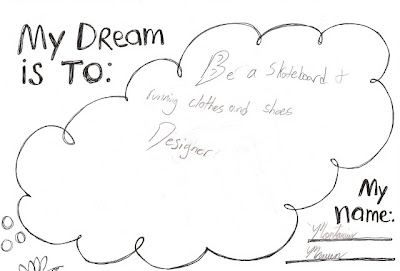 My DREAM
is TO:
Be a Skateboard &
running clothes and shoes
Designer
My
name: